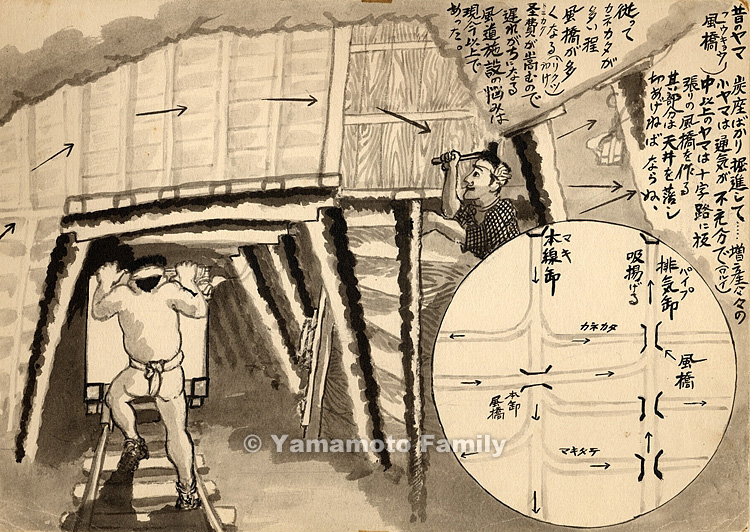 昔のヤマ
風橋(フウキョウ)
炭座ばかり掘進して……増産々々の
小ヤマは通気が不充分で(ワルイ)
中以上のヤマは十字路に板
張りの風橋を作る
其部分は天井を落し
切あげねばならぬ、
従って
カネカタが
多い程
風橋が多
くなる
坑費が嵩むので
遅れがちになる
風道施設の悩みは
現今以上で
あった。
マキ
本線卸
パイプ
排気卸
吸揚げる
カネカタ
風橋
本卸
風橋
マキタテ
© Yamamoto Family